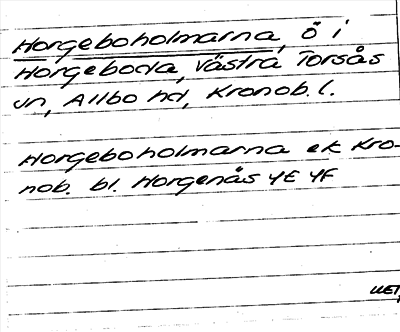 Horgeboholmarna, ö i
Horgeboda, Västra Torsås
sn, Allbo hd, Kronob. l.
Horgeboholmarna ek Kro-
nob. bl. Horgenås 4E 4F